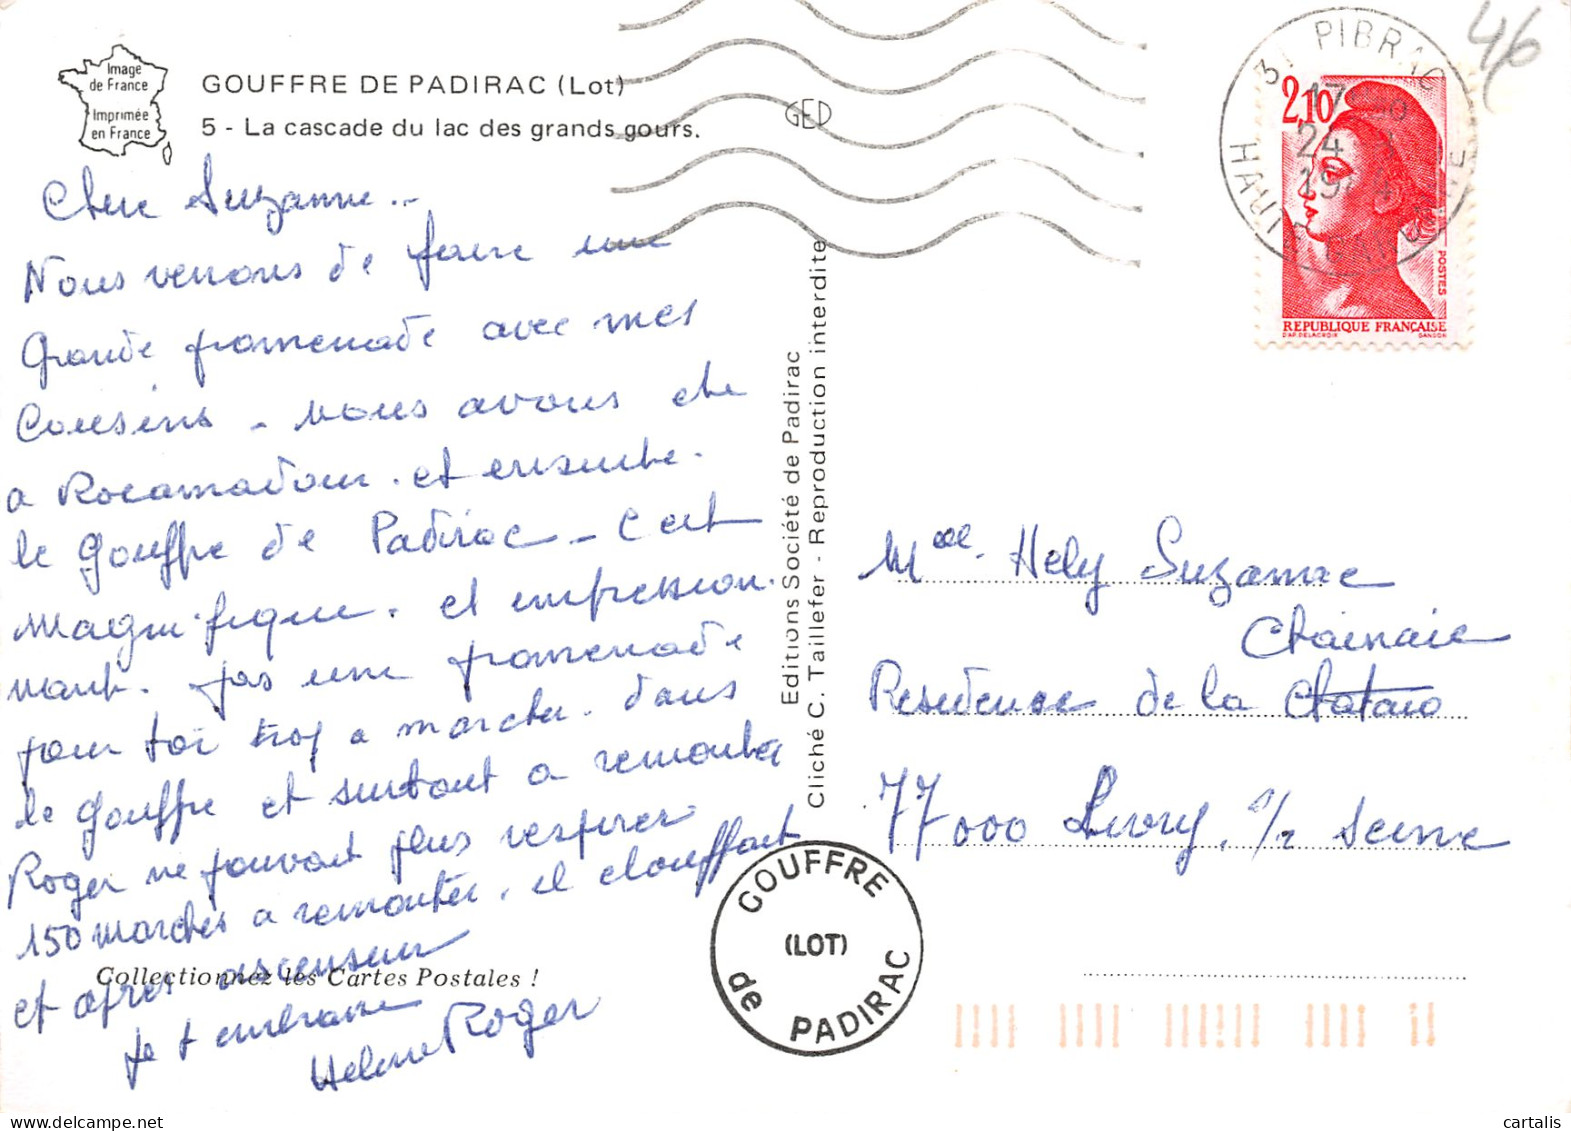 Image
de France
Imprimée
en France
GOUFFRE DE PADIRAC (Lot)
5 - La cascade du lac des grands gours.
GED
46
Chere Suzanne..
Nous venons de faire une
grande promenade avec mes
Cousins - nous avons ete
a Rocamadour. et ensuite.
le gouffre de Padirac - C est
magnifique. et impression.
nant. pas une promenade
pour toi trop a marcher. dans
le gouffre et surtout a remonter
Roger ne pouvait plus respirer
150 marches a remonter. il etouffait
et apres ascenseur
Collectionnez les Cartes Postales !
Je t embrasse
Helene Roger
Editions Société de Padirac
Cliché C. Taillefer - Reproduction interdite
GOUFFRE
(LOT)
de PADIRAC
31 PIBRAC
17
24
HAUTE GARONNE
2,10
POSTES
REPUBLIQUE FRANÇAISE
D'AP. DELACROIX GANDON
Hely Suzanne
Chainaie
Residense de la
77000 Livry, s/ Seine
cartalis